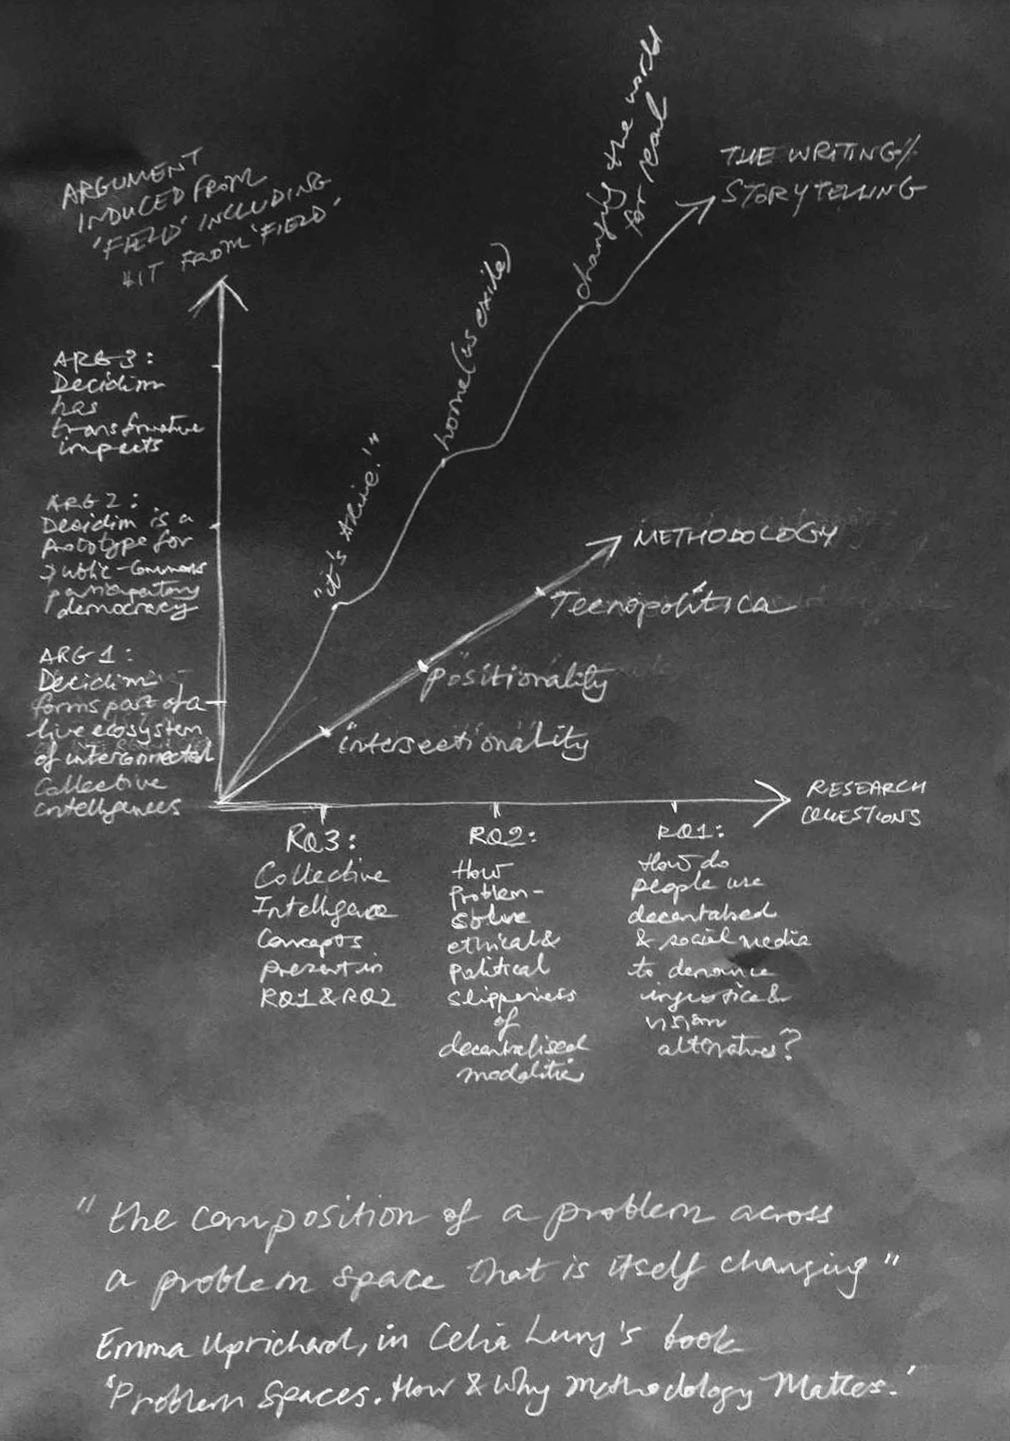 ARGUMENT
INDUCED FROM
'FIELD' INCLUDING
LIT FROM 'FIELD'
ARG 3:
Decidim
has
transformative
impacts
ARG 2:
Decidim is a
prototype for
public-commons
participatory
democracy
ARG 1:
Decidim
forms part of a
live ecosystem
of interconnected
Collective
intelligences
"it's alive!"
home (as exile)
changing the world
for real
THE WRITING/
STORYTELLING
METHODOLOGY
Tecnopolítica
positionality
intersectionality
RESEARCH
QUESTIONS
RQ3:
Collective
Intelligence
Concepts
present in
RQ1 & RQ2
RQ2:
How
problem-
solve
ethical &
political
slipperiness
of
decentralised
modalities
RQ1:
How do
people use
decentralised
& social media
to denounce
injustice &
vision
alternatives?
"the composition of a problem across
a problem space that is itself changing"
Emma Uprichard, in Celia Lury's book
'Problem Spaces. How & Why Methodology Matters.'